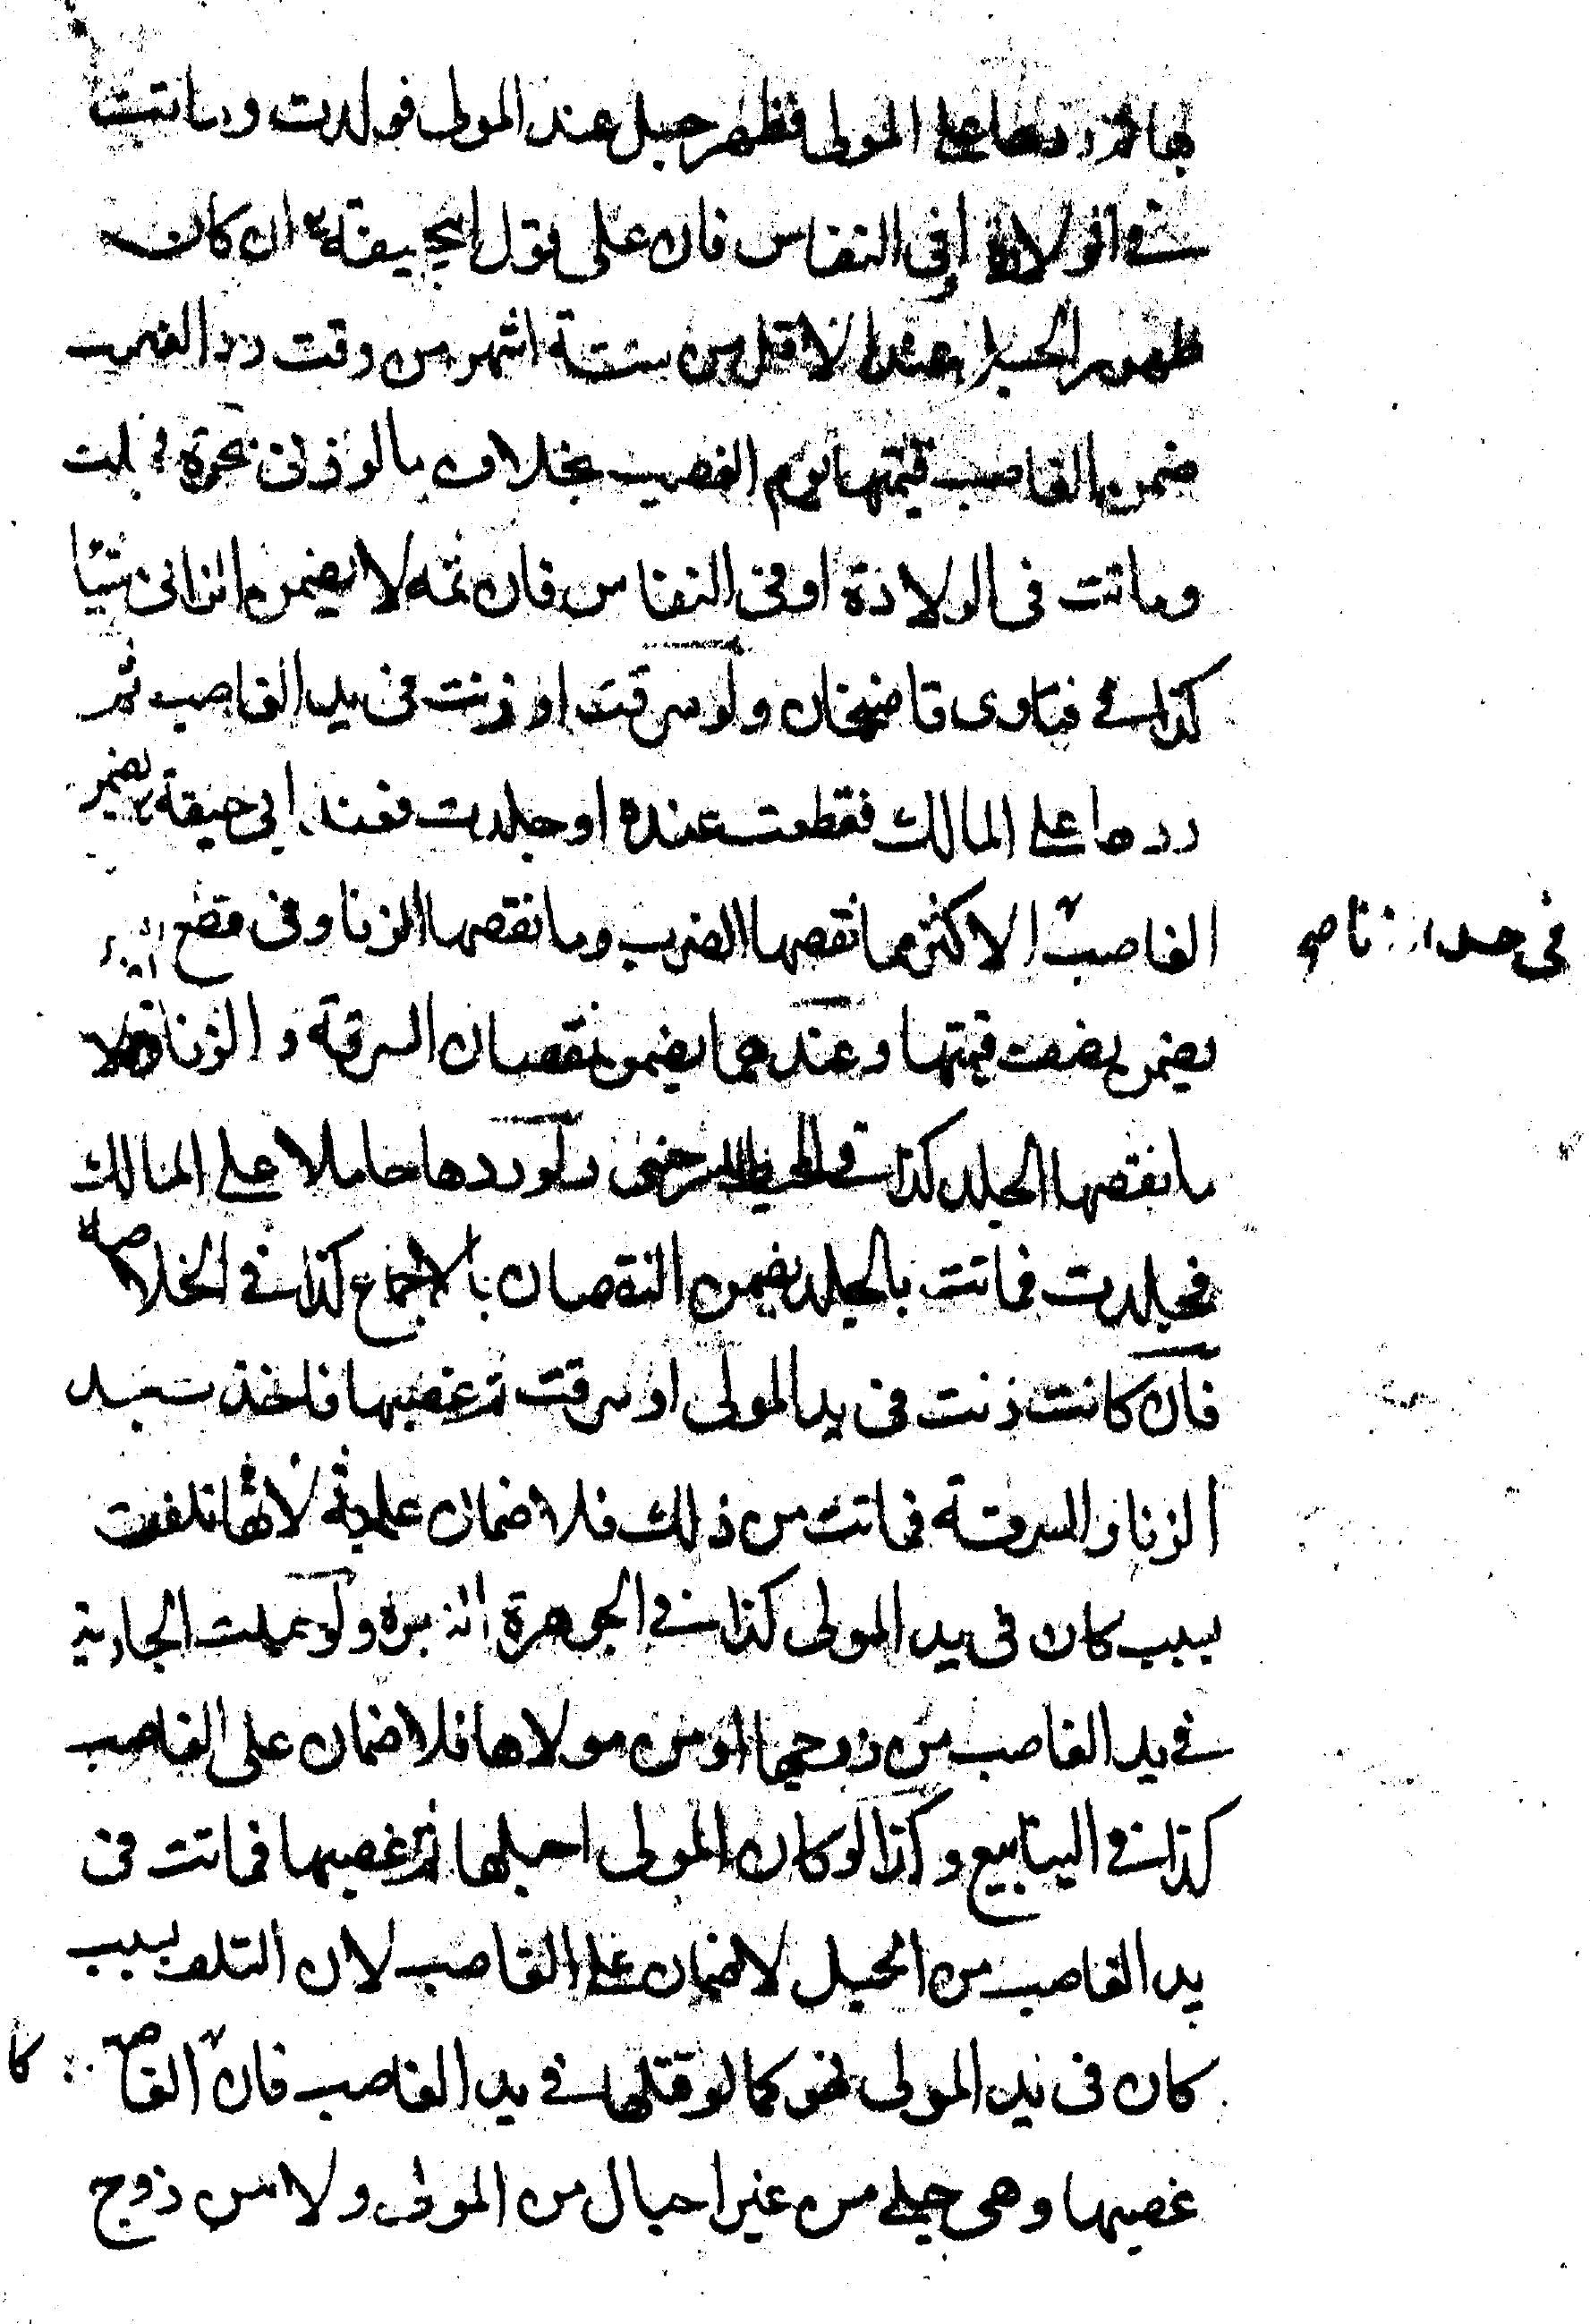 بها ثم ردها على المولى فظهر حبل عند المولى فولدت وماتت
في الولادة او في النفاس فان على قول ابي حنيفة رح ان كان
ظهور الحبل عند المولى لاقل من ستة اشهر من وقت رد الغصب
ضمن الغاصب قيمتها يوم الغصب بخلاف ما لو زنى بحرة فحبلت
وماتت فى الولادة او فى النفاس فان ثمه لا يضمن الزانى شيئا
كذا في فتاوى قاضيخان ولو سرقت او زنت فى يد الغاصب ثم
ردها على المالك فقطعت عنده او جلدت فعند ابي حنيفة رح يضمن
الغاصب الاكثر مما نقصها الضرب وما نقصها الزنا وفى قطع
في حد الزنا صح
يضمن نصف قيمتها وعندهما يضمن نقصان السرقة و الزنا ولا
ما نقصها الجلد كذا في المحيط السرخسى ولو ردها حاملا على المالك
فجلدت فماتت بالجلد يضمن النقصان بالاجماع كذا في الخلاصه
فان كانت زنت فى يد المولى او سرقت ثم غصبها فاخذت بحد
الزنا والسرقة فماتت من ذلك فلا ضمان عليه لانها تلفت
بسبب كان فى يد المولى كذا في الجوهرة النيرة ولو حملت الجارية
في يد الغاصب من زوجها او من مولاها فلا ضمان على الغاصب
كذا في الينابيع وكذا لو كان المولى احبلها ثم غصبها فماتت فى
يد الغاصب من الحبل لا ضمان على الغاصب لان التلف بسبب
كان فى يد المولى فهو كما لو قتلها في يد الغاصب فان الغاصب كا
غصبها وهى حبلى من غير احبال من المولى ولا من زوج